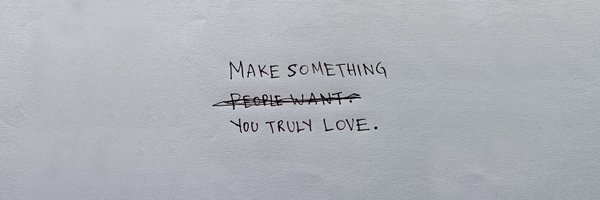 MAKE SOMETHING
PEOPLE WANT.
YOU TRULY LOVE.